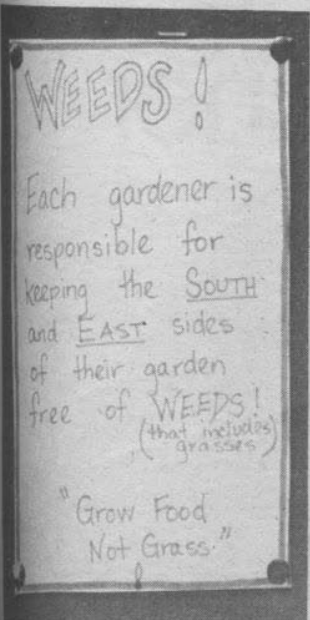 WEEDS!
Each gardener is
responsible for
keeping the SOUTH
and EAST sides
of their garden
free of WEEDS!
(that includes
grasses)
"Grow Food
Not Grass."
!